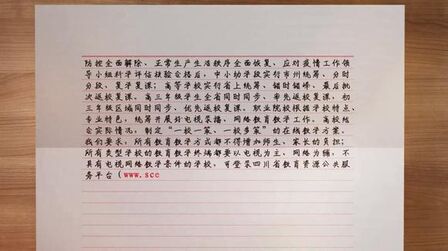 防控全面解除、正常生产生活秩序全面恢复、应对疫情工作领
导小组科学评估核验合格后，中小幼学段实行市州统筹、分时
分段、复学复课；高等学校实行省上统筹、错时错峰、最后批
次返校复课。高三年级学生全省同时同步、率先返校复课，初
三年级区域同时同步、优先返校复课。职业院校根据学校特点、
专业特色，统筹开展好电视录播、网络教育教学工作。高校结
合实际情况，制定“一校一案、一校多案”的在线教学方案。
我们要求，所有教育教学方式都不得增加师生、家长的负担；
所有类型学校的教育教学终端都要以电视为主、网络为辅，不
具有电视网络教学条件的学校，可登录四川省教育资源公共服
务平台（www.scc